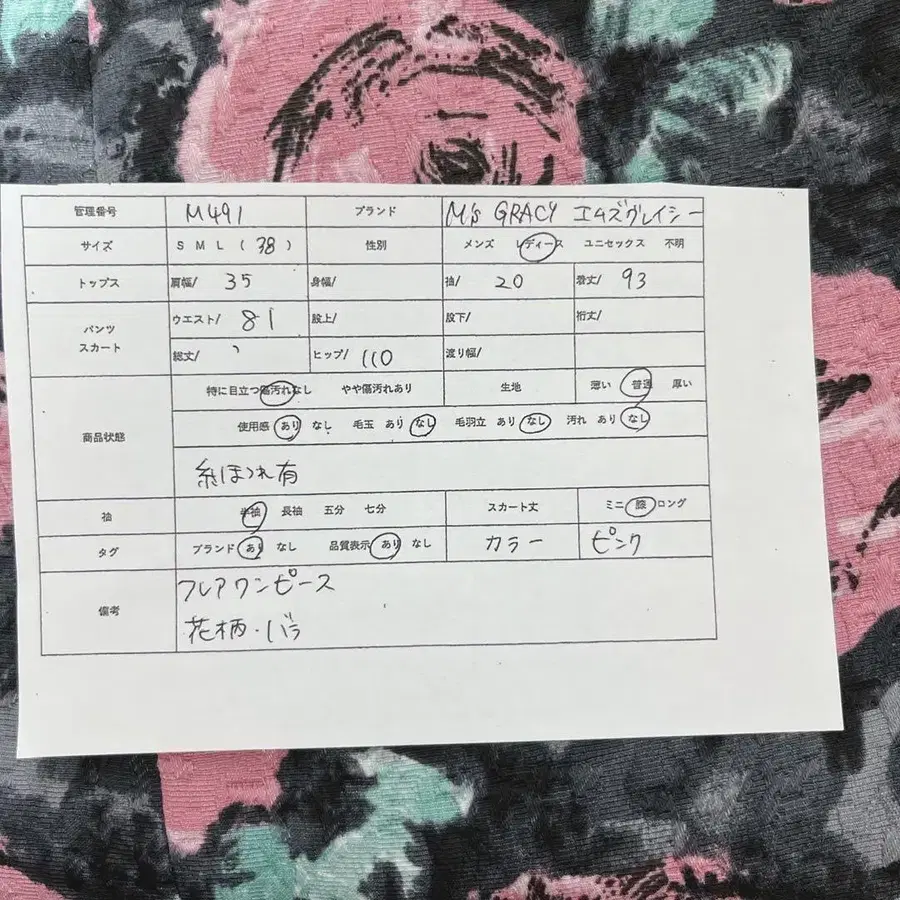 管理番号 M491 ブランド M's GRACY エムズグレイシー
サイズ S M L ( 38 ) 性別 メンズ レディース ユニセックス 不明
トップス 肩幅/ 35 身幅/ 袖/ 20 着丈/ 93
パンツ スカート ウエスト/ 81 股上/ 股下/ 裄丈/
総丈/ ヒップ/ 110 渡り幅/
商品状態 特に目立つ傷汚れなし やや傷汚れあり 生地 薄い 普通 厚い
使用感 あり なし 毛玉 あり なし 毛羽立 あり なし 汚れ あり なし
糸ほつれ有
袖 半袖 長袖 五分 七分 スカート丈 ミニ 膝 ロング
タグ ブランド あり なし 品質表示 あり なし カラー ピンク
備考 フレアワンピース
花柄・バラ